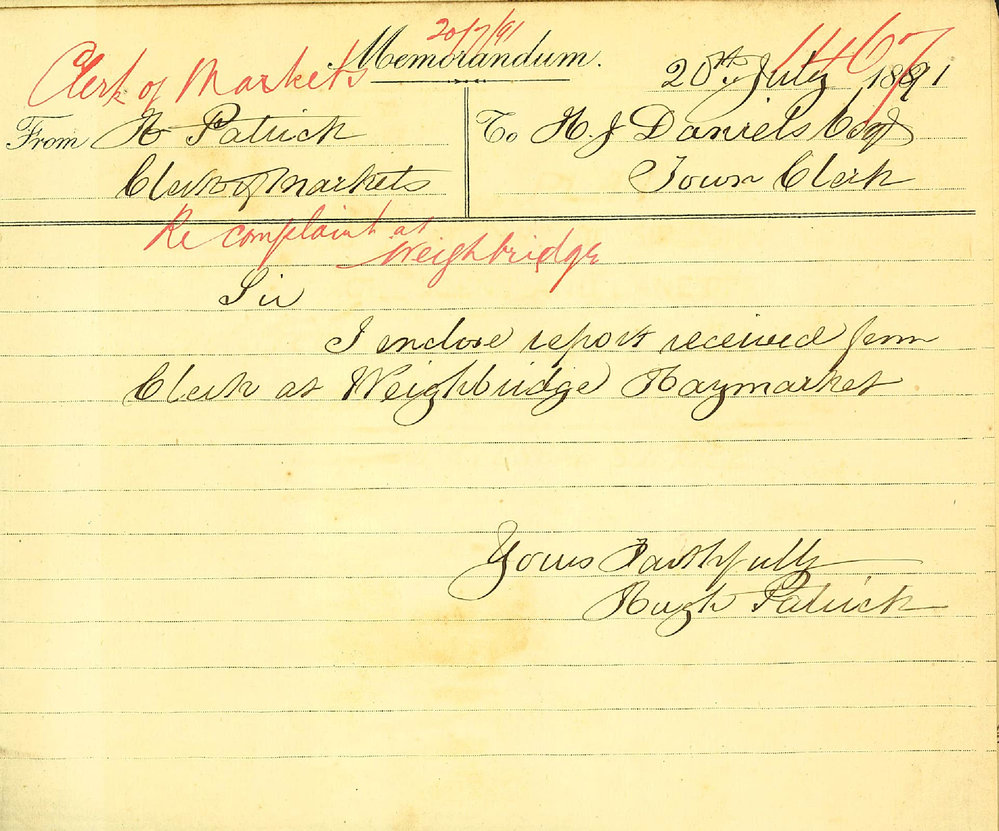 20/7/91
Clerk of Markets
Memorandum.
1467
20th July 1891
From H Patrick
Clerk of Markets
To H. J Daniels Esq
Town Clerk
Re complaint at
Weighbridge
Sir
I enclose report received from
Clerk at Weighbridge Haymarket
Yours Faithfully
Hugh Patrick